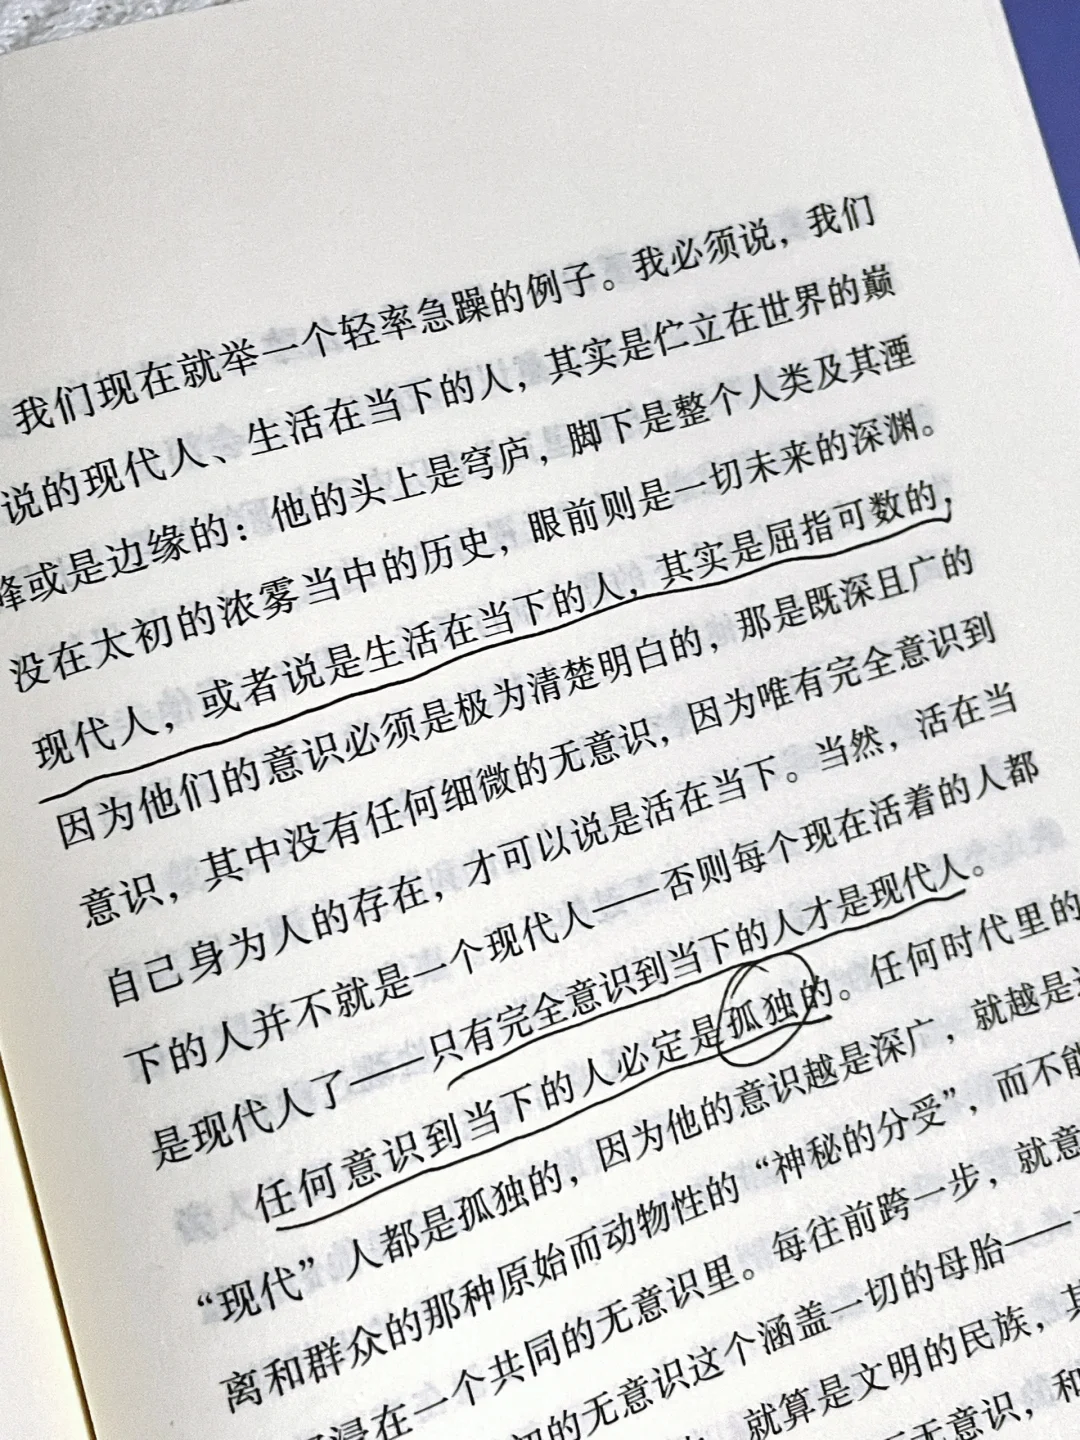 我们现在就举一个轻率急躁的例子。我必须说，我们
说的现代人、生活在当下的人，其实是伫立在世界的巅
峰或是边缘的：他的头上是穹庐，脚下是整个人类及其湮
没在太初的浓雾当中的历史，眼前则是一切未来的深渊。
现代人，或者说是生活在当下的人，其实是屈指可数的，
因为他们的意识必须是极为清楚明白的，那是既深且广的
意识，其中没有任何细微的无意识，因为唯有完全意识到
自己身为人的存在，才可以说是活在当下。当然，活在当
下的人并不就是一个现代人——否则每个现在活着的人都
是现代人了——只有完全意识到当下的人才是现代人。
任何意识到当下的人必定是孤独的。任何时代里的
“现代”人都是孤独的，因为他的意识越是深广，就越是
离和群众的那种原始而动物性的“神秘的分受”，而不能
浸在一个共同的无意识里。每往前跨一步，就意
初的无意识这个涵盖一切的母胎——
就算是文明的民族，其
无意识，和